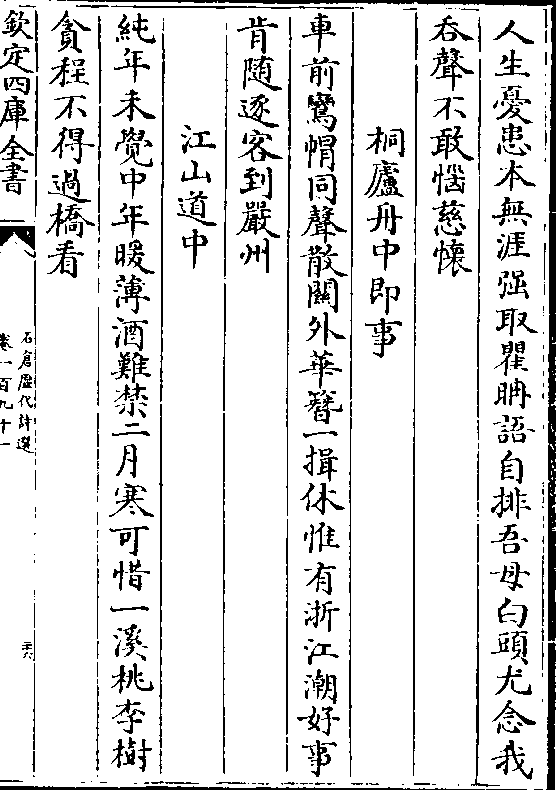 人生憂患本無涯强取瞿聃語自排吾母白頭尤念我
吞聲不敢惱慈懷
桐廬舟中即事
車前鸞㡌同聲散闗外華簪一揖休惟有浙江潮好事
肯随逐客到嚴州
江山道中
純年未覺中年暖薄酒難禁二月寒可惜一溪桃李樹
貪程不得過橋看
欽定四庫全書
石倉歷代詩選
卷一百九十一
三六